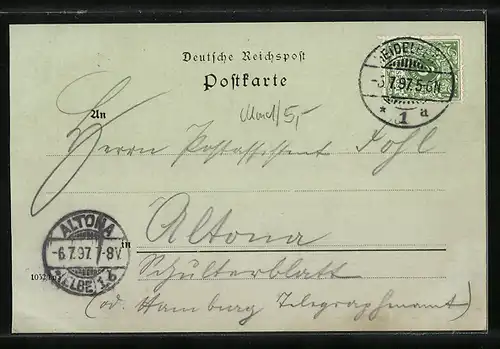 Deutsche Reichspost
Postkarte
HEIDELBERG
-3.7.97.5-6N
* 1 d
An
Herrn Postassistent Fohl
Altona
ALTONA
-6.7.97.7-8V
(ELBE) 1 b
in
Schulterblatt
(od. Hamburg Telegraphenamt)